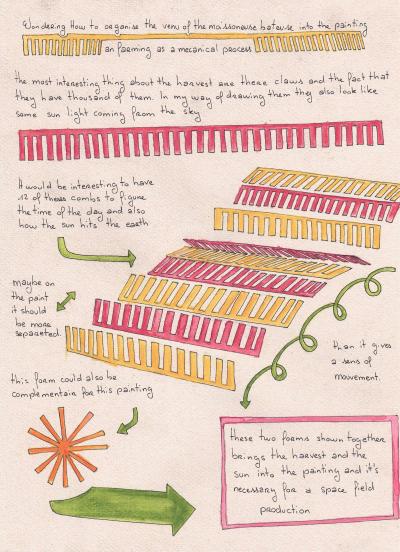 Wondering How to organise the venu of the maissoneuse bateuse into the painting
an farming as a mecanical process
the most interesting thing about the harvest are there claws and the fact that
they have thousand of them. In my way of drawing them they also look like
some sun light coming from the sky
It would be interesting to have
12 of theas combs to figure
the time of the day and also
how the sun hits the earth
maybe on
the paint
it should
be more
separeted.
than it gives
a sens of
mouvement.
this form could also be
complementain for this painting
these two forms shown together
brings the harvest and the
sun into the painting and it's
necessary for a space field
production